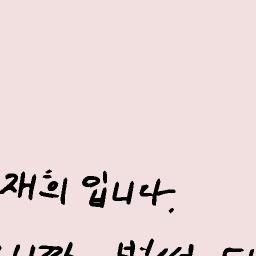 재희 입니다.
니까 벌써